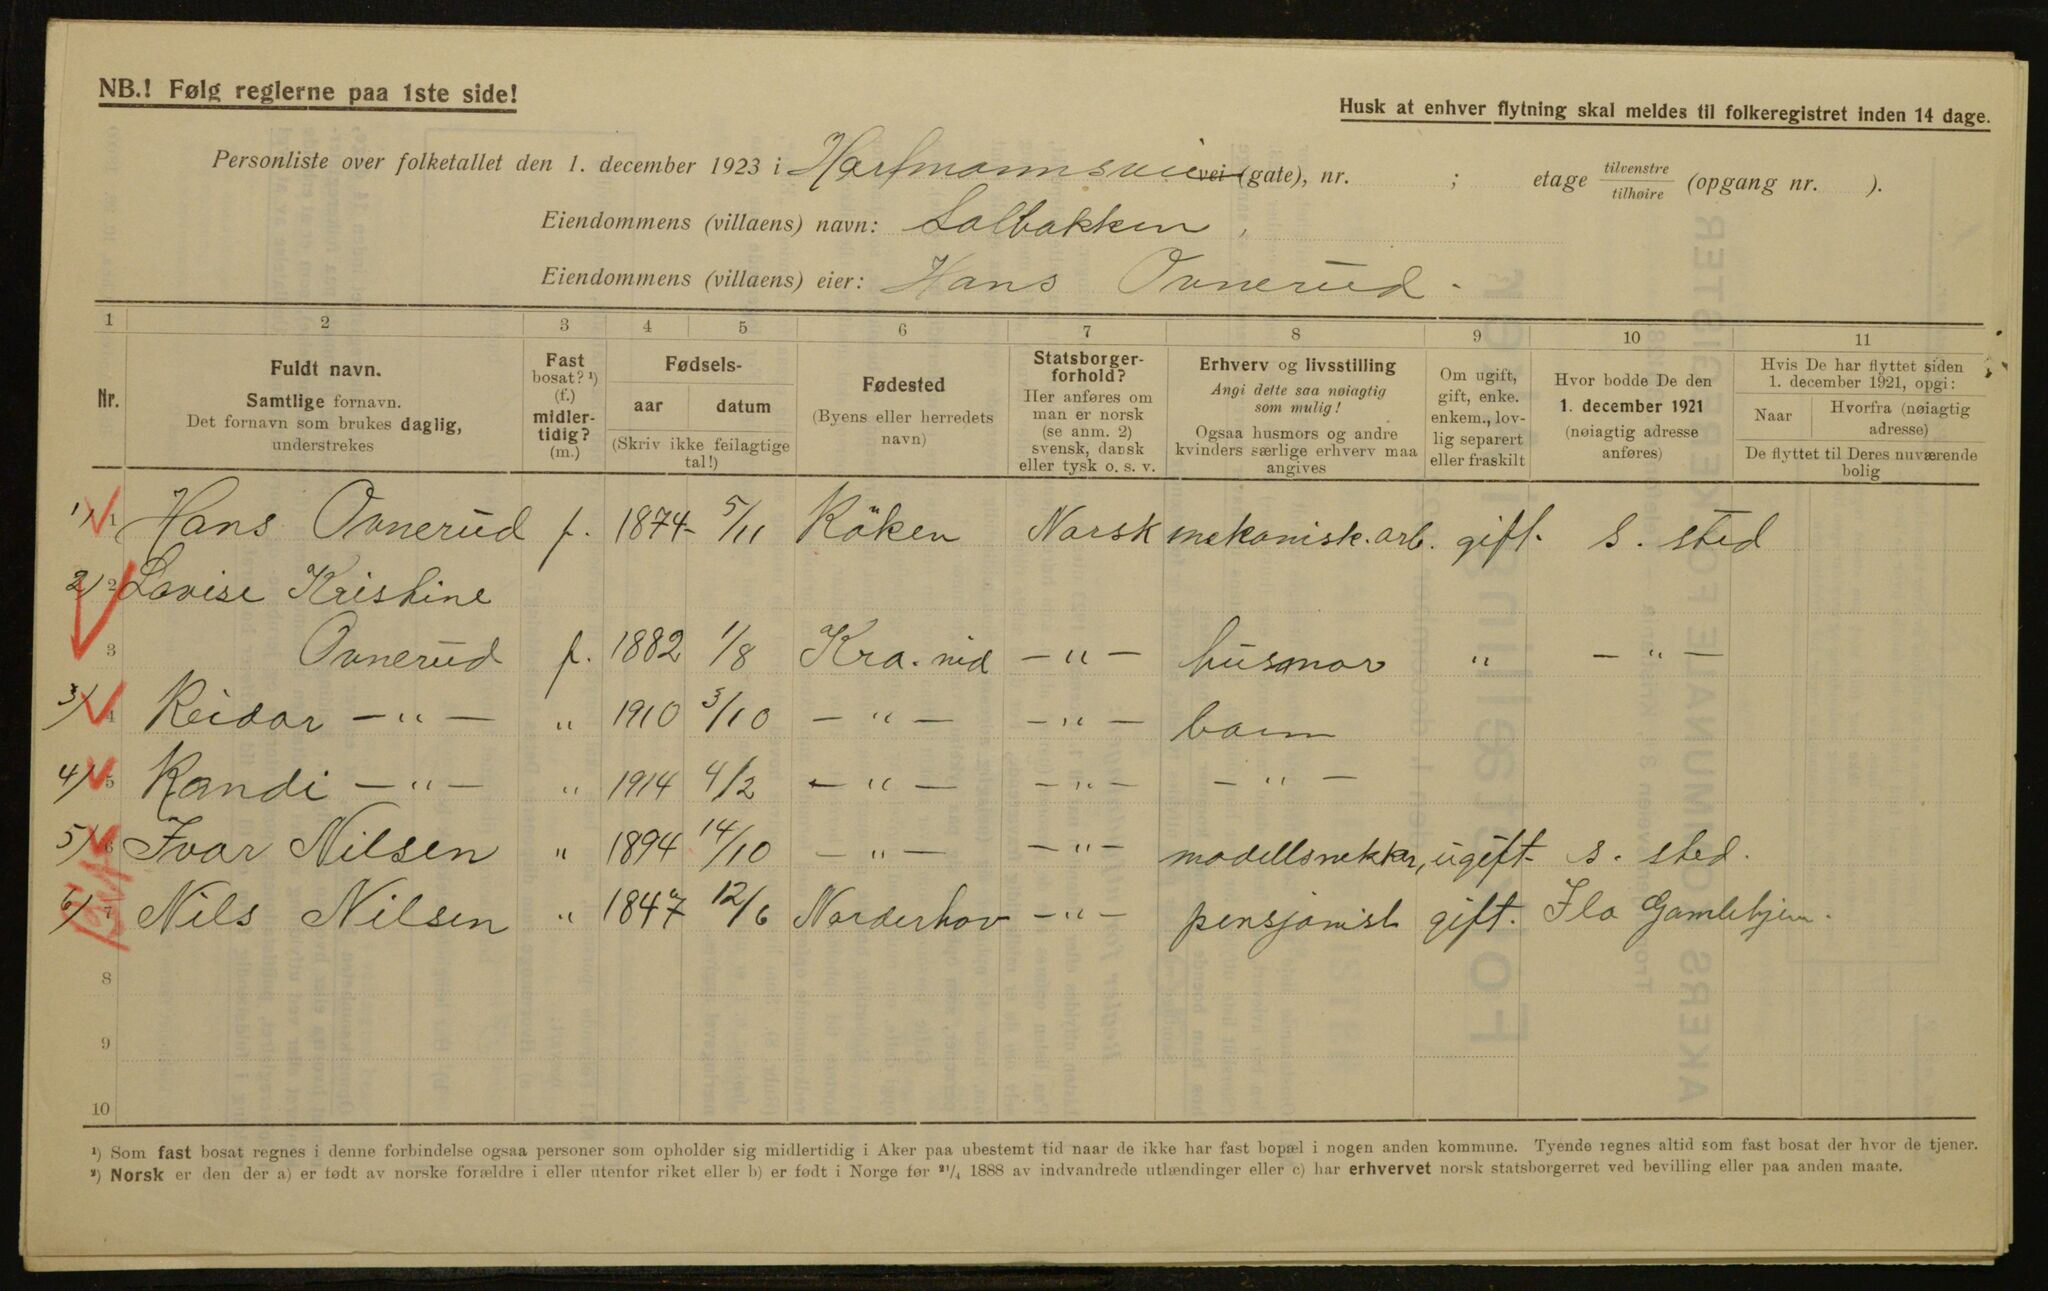 NB.! Følg reglerne paa 1ste side!
Husk at enhver flytning skal meldes til folkeregistret inden 14 dage.
Personliste over folketallet den 1. december 1923 i Hartmannsvei vei (gate), nr. ; etage tilvenstre tilhøire (opgang nr. ).
Eiendommens (villaens) navn: Solbakken
Eiendommens (villaens) eier: Hans Ovnerud.
1 2 3 4 5 6 7 8 9 10 11
Nr.
Fuldt navn.
Samtlige fornavn.
Det fornavn som brukes daglig,
understrekes
Fast
bosat? ¹)
(f.)
midler-
tidig?
(m.)
Fødsels-
aar datum
(Skriv ikke feilagtige
tal!)
Fødested
(Byens eller herredets
navn)
Statsborger-
forhold?
Her anføres om
man er norsk
(se anm. 2)
svensk, dansk
eller tysk o. s. v.
Erhverv og livsstilling
Angi dette saa nøiagtig
som mulig!
Ogsaa husmors og andre
kvinders særlige erhverv maa
angives
Om ugift,
gift, enke.
enkem., lov-
lig separert
eller fraskilt
Hvor bodde De den
1. december 1921
(nøiagtig adresse
anføres)
Hvis De har flyttet siden
1. december 1921, opgi:
Naar Hvorfra (nøiagtig
adresse)
De flyttet til Deres nuværende
bolig
1) 1 Hans Ovnerud f. 1874 5/11 Röken Norsk mekanisk. arb. gift. S. sted
2) 2 Lovise Kristine
3 Ovnerud f. 1882 1/8 Kra. nid — " — husmor " — " —
3) 4 Reidar — " — " 1910 3/10 — " — — " — barn
4) 5 Randi — " — " 1914 4/2 — " — — " — — " —
5) 6 Ivar Nilsen " 1894 14/10 — " — — " — modellsnekker, ugift. S. sted.
6) 7 Nils Nilsen " 1847 12/6 Norderhov — " — pensjonist gift. Ila Gamlehjem.
8
9
10
¹) Som fast bosat regnes i denne forbindelse ogsaa personer som opholder sig midlertidig i Aker paa ubestemt tid naar de ikke har fast bopæl i nogen anden kommune. Tyende regnes altid som fast bosat der hvor de tjener.
²) Norsk er den der a) er født av norske forældre i eller utenfor riket eller b) er født i Norge før ²¹/₄ 1888 av indvandrede utlændinger eller c) har erhvervet norsk statsborgerret ved bevilling eller paa anden maate.